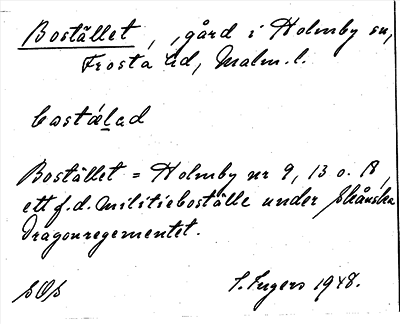 Bostället, gård i Holmby sn,
Frosta hd, Malm. l.
bostälad
Bostället = Holmby nr 9, 13 o. 18,
ett f.d. militieboställe under Skånska
Dragonregementet.
SOS
S. Ingers 1948.